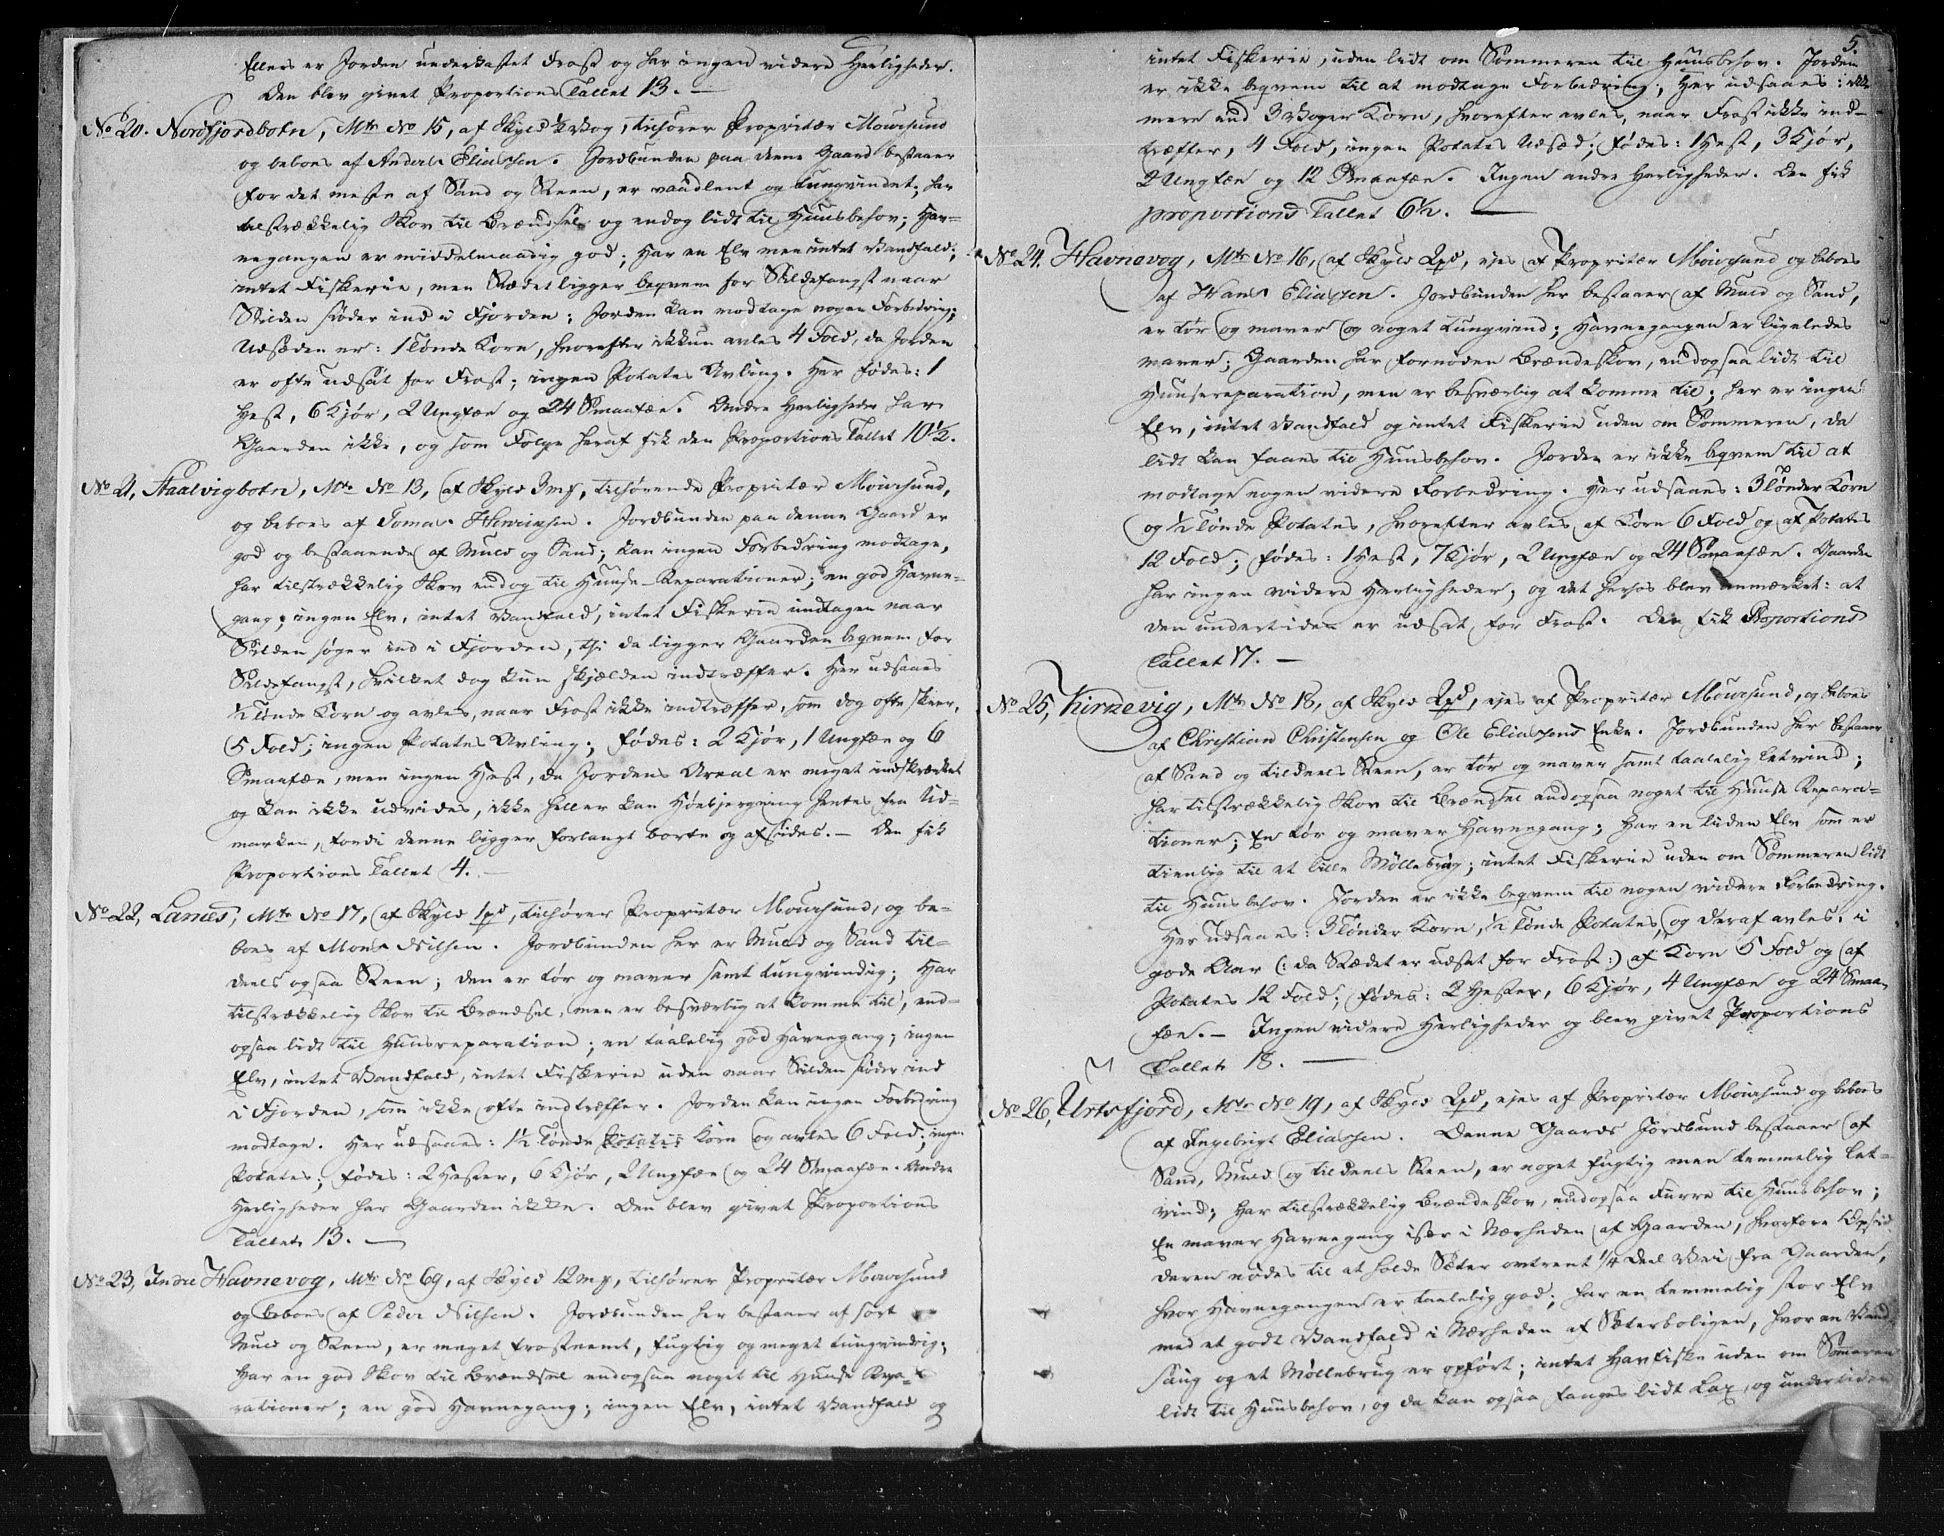 Ellers er Jorden underkastet Frost og har ingen videre Herligheder.
Den blev givet Proportions Tallet 13. —
No 20. Nordfjordbotn, Mtr No 15, af Skyld ½ Vog, tilhører Propritær Moursund
og beboes af Anders Eliassen. Jordbunden paa denne Gaard bestaaer
for det meste af Sand og Steen, er vandlent og tungvindet; har
tilstrækkelig Skov til Brændsel og endog lidt til Huusbehov; Hav-
negangen er middelmaadig god; Har en Elv men intet Vandfald;
intet Fiskerie, men Stædet ligger beqvem for Sildefangst naar
Silden støder ind i Fjorden; Jorden kan modtage nogen Forbedring;
Udsæden er: 1 Tønde Korn, hvorefter ikkun avles 4 Fold, da Jorden
er ofte udsat for Frost; ingen Potates Avling. Her fødes: 1
Hest, 6 Kjør, 2 Ungfæe og 24 Smaafæe. Andre Herligheder har
Gaarden ikke, og som Følge heraf fik den Proportions Tallet 10½.
No 21, Aalvigbotn, Mtr No 13, af Skyld 3 m#, tilhørende Propritær Moursund,
og beboes af Tomas Henrixen. Jordbunden paa denne Gaard er
god og bestaaende af Muld og Sand; kan ingen Forbedring modtage,
har tilstrækkelig Skov endog til Huuse-Reparationer; en god Havne-
gang; ingen Elv, intet Vandfald, intet Fiskerie undtagen naar
Silden søger ind i Fjorden, thi da ligger Gaarden beqvem for
Sildefangst, hvilket dog kun skjælden indtræffer. Her udsaaes
½ Tønde Korn og avles, naar Frost ikke indtræffer, som dog ofte skeer,
5 Fold; ingen Potates Avling; fødes: 2 Kjør, 1 Ungfæe og 6
Smaafæe, men ingen Hest, da Jordens Areal er meget indskrænket
og kan ikke udvides, ikke heller kan Høebjergning hentes fra Ud-
marken, fordi denne ligger forlangt borte og afsides. — Den fik
Proportions Tallet 4. —
No 22, Lanæs, Mtr No 17, af Skyld 1 pd, tilhører Propritær Moursund, og be-
boes af Mons Nilsen. Jordbunden her er Muld og Sand til-
deels ogsaa Steen; den er tør og maver samt tungvindig; Har
tilstrækkelig Skov til Brændsel, men er besværlig at komme til, end-
ogsaa lidt til Huusreparation; en taalelig god Havnegang; ingen
Elv, intet Vandfald, intet Fiskerie uden naar Silden støder ind
i Fjorden, som ikke ofte indtræffer. Jorden kan ingen Forbedring
modtage. Her udsaaes: 1½ Tønde Potates Korn og avles 6 Fold; ingen
Potates; fødes: 2 Hester, 6 Kjør, 2 Ungfæe og 24 Smaafæe. Andre
Herligheder har Gaarden ikke. Den blev givet Proportions
Tallet 13. —
No 23, Indre Havnevog, Mtr No 69, af Skyld 12 m#, tilhører Propritær Moursund
og beboes af Peder Nilsen. Jordbunden her bestaaer af sort
Muld og Steen, er meget frostnemt, fugtig og meget tungvindig;
Har en god Skov til Brændsel endogsaa noget til Huuse Repa-
rationer; en god Havnegang; ingen Elv, intet Vandfald og
5.
intet Fiskerie, uden lidt om Sommeren til Huusbehov. Jorden
er ikke beqvem til at modtage Forbedring; Her udsaaes: ikke
mere end 3 Voger Korn, hvorefter avles, naar Frost ikke ind-
træffer, 4 Fold, ingen Potates Udsæd; fødes: 1 Hest, 3 Kjør,
2 Ungfæe og 12 Smaafæe. Ingen andre Herligheder. Den fik
proportions Tallet 6½. —
No 24. Havnevog, Mtr No 16, af Skyld 2 pd, ejes af Propritær Moursund og beboes
af Hans Eliassen. Jordbunden her bestaaer af Muld og Sand,
er tør og maver og noget tungvind; Havnegangen er ligeledes
maver; Gaarden har fornøden Brændeskov, endogsaa lidt til
Huusereparation, men er besværlig at komme til; her er ingen
Elv, intet Vandfald og intet Fiskerie uden om Sommeren, da
lidt kan faaes til Huusbehov. Jorden er ikke beqvem til at
modtage nogen videre Forbedring. Her udsaaes: 3 Tønder Korn
og ½ Tønde Potates, hvorefter avles af Korn 6 Fold og af Potates
12 Fold; fødes: 1 Hest, 7 Kjør, 2 Ungfæe og 24 Smaafæe. Gaarden
har ingen videre Herligheder, og det herhos blev anmærket: at
den undertiden er udsat for Frost. Den fik Proportions
Tallet 17. —
No 25, Kirnevig, Mtr No 18, af Skyld 2 pd, ejes af Propritær Moursund, og beboes
af Christian Christensen og Ole Eliassens Enke. Jordbunden her bestaaer
af Sand og tildeels Steen, er tør og maver samt taalelig letvind;
har tilstrækkelig Skov til Brændsel endogsaa noget til Huuse Repara-
tioner; En tør og maver Havnegang; har en liden Elv som er
tienlig til et lille Møllebrug; intet Fiskerie uden om Sommeren lidt
til Huusbehov. Jorden er ikke beqvem til nogen videre Forbedring.
Her udsaaes: 3 Tønder Korn, ½ Tønde Potates, og deraf avles, i
gode Aar (: da Stædet er udsat for Frost :) af Korn 5 Fold og af
Potates 12 Fold; fødes: 2 Hester, 6 Kjør, 4 Ungfæe og 24 Smaa-
fæe. — Ingen videre Herligheder og blev givet Proportions
Tallet 18. —
No 26, Urtsfjord, Mtr No 19, af Skyld 2 pd, ejes af Propritær Moursund og beboes
af Ingebrigt Eliassen. Denne Gaards Jordbund bestaaer af
Sand, Muld og tildeels Steen, er noget fugtig men temmelig let-
vind; har tilstrækkelig Brændeskov, endogsaa Furre til Huusbehov;
En maver Havnegang især i Nærheden af Gaarden, hvorfore Opsid-
deren nødes til at holde Sæter omtrent ¼ Deel Vei fra Gaarden,
hvor Havnegangen er taalelig god; har en temmelig stor Elv
med et godt Vandfald i Nærheden af Sæterboligen, hvor en Vand-
Saug og et Møllebrug er opført; intet Havfiske uden om Sommeren
lidt til Huusbehov, og da kan ogsaa fanges lidt Lax, og undertiden